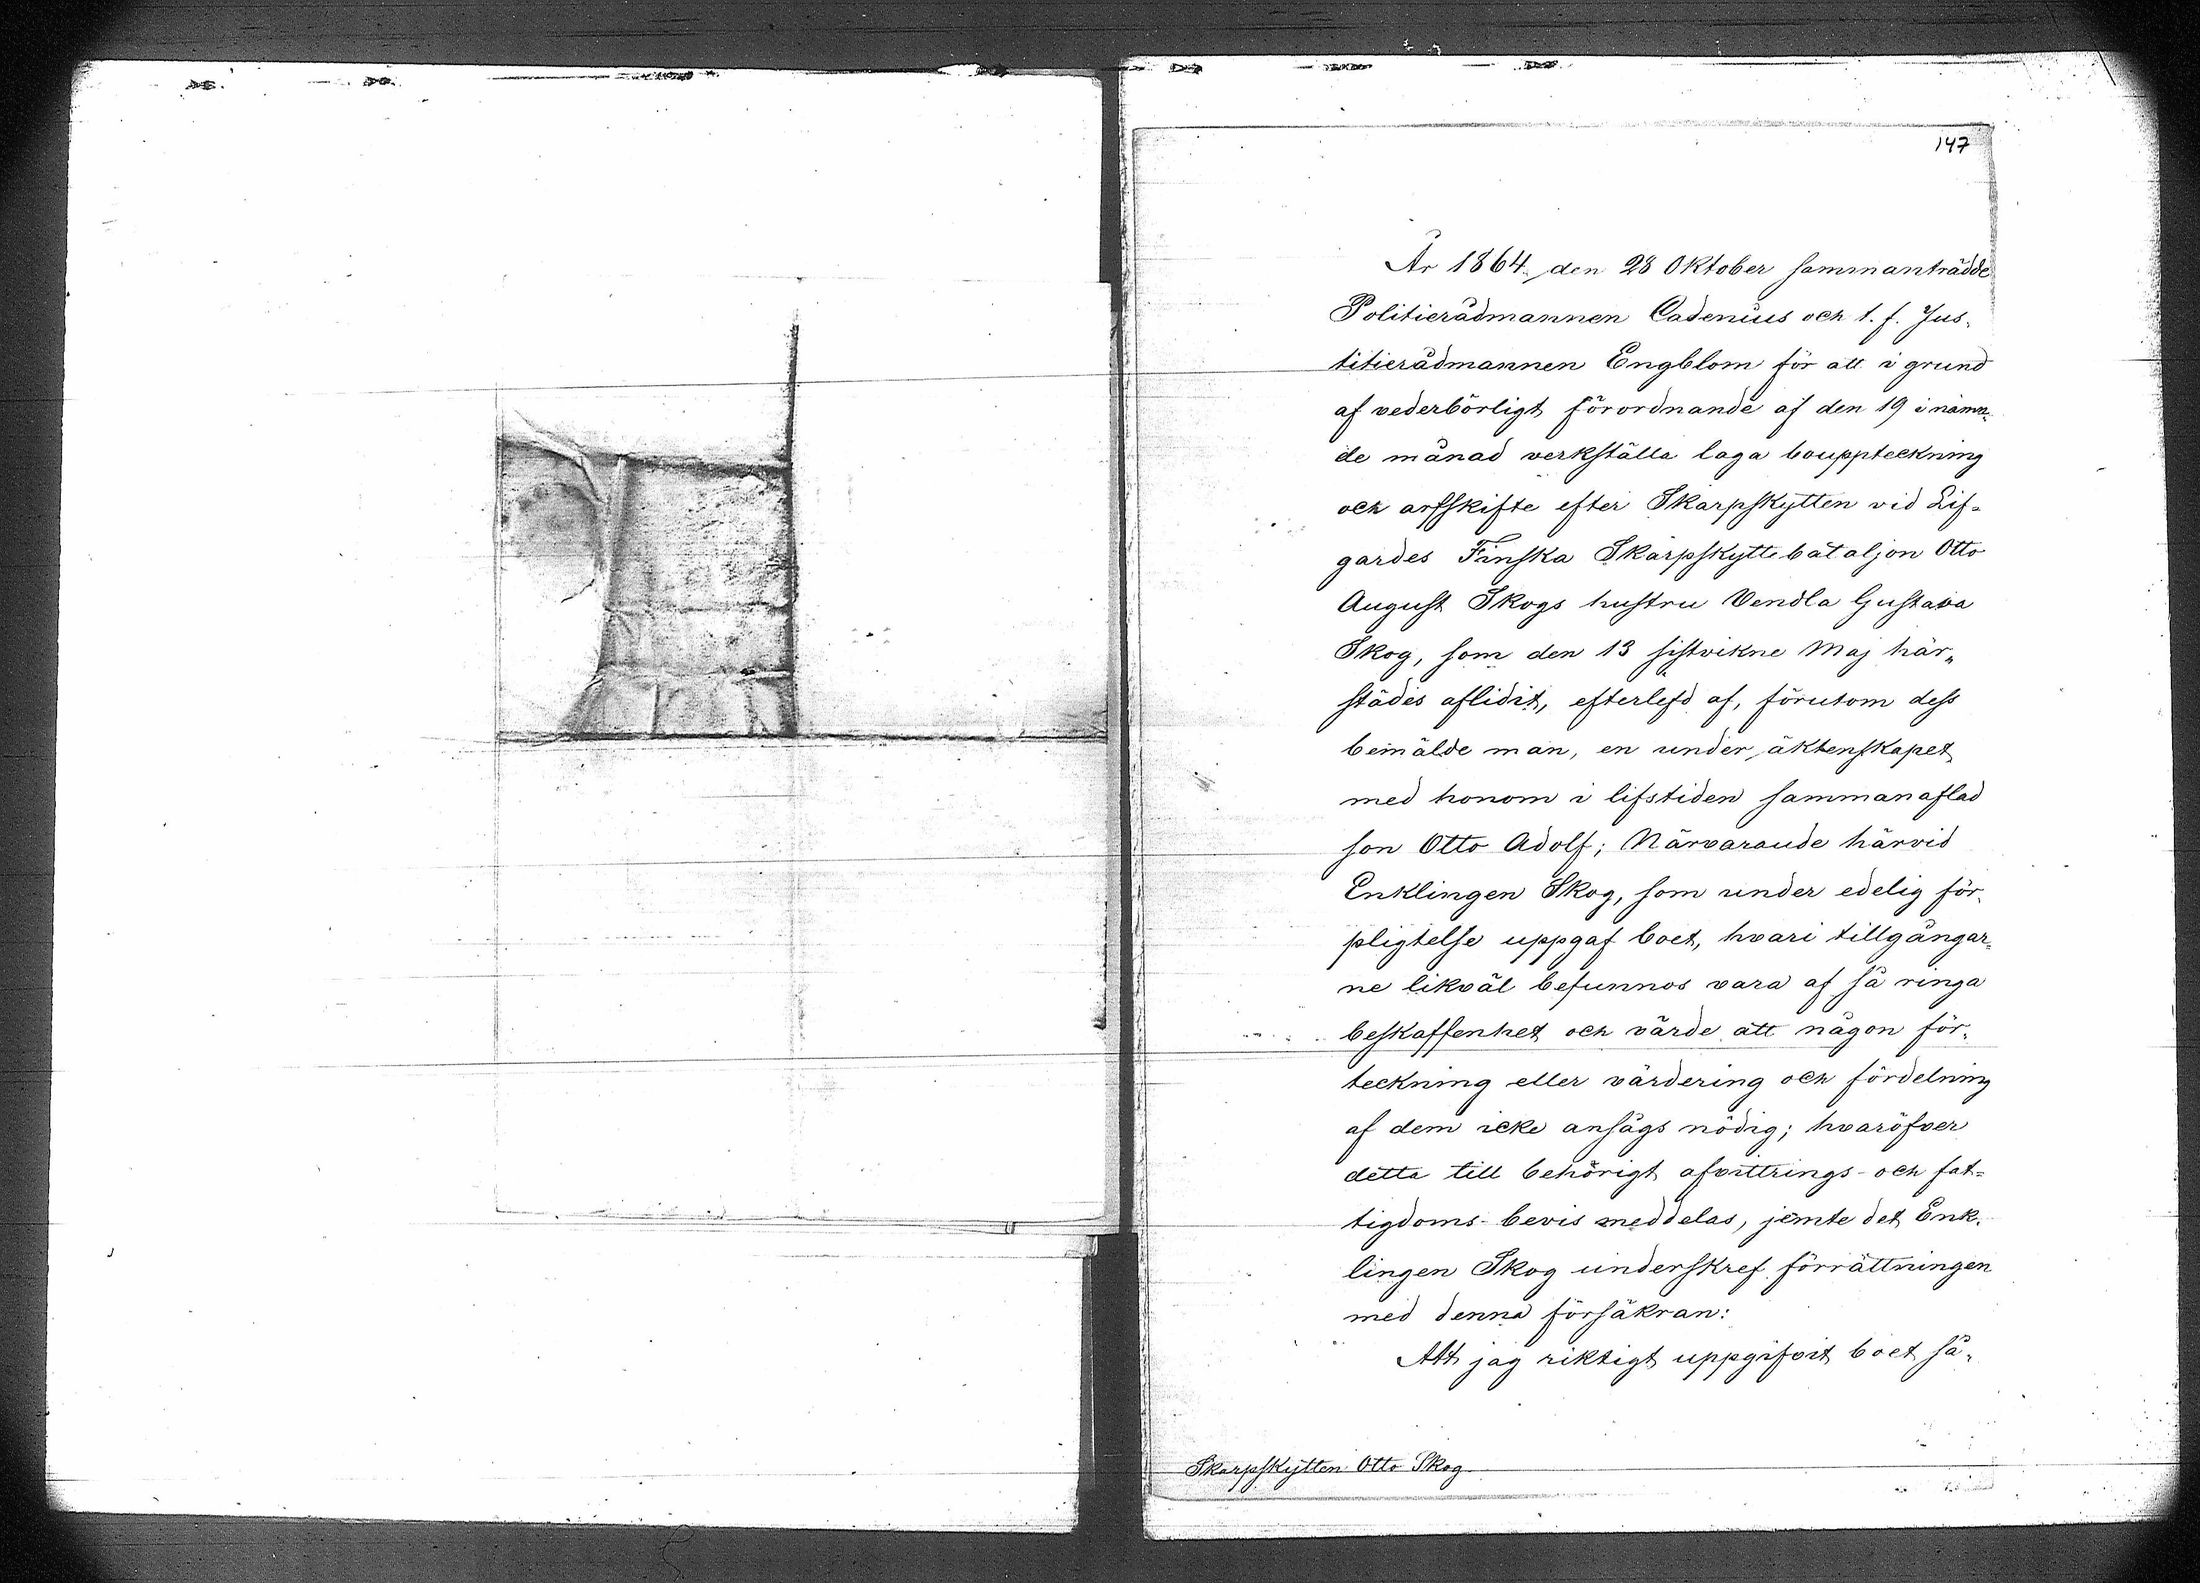 147
År 1864 den 28 Oktober sammanträdde
Politierådmannen Cadenius och t. f. Jus„
titierådmannen Engblom för att i grund
af vederbörligt förordnande af den 19 i nämn„
de månad verkställa laga bouppteckning
och arfskifte efter Skarpskytten vid Lif„
gardes Finska Skarpskyttebataljon Otto
August Skogs hustru Vendla Gustava
Skog, som den 13 sistvikne Maj här„
städes aflidit, efterlefd af, förutom dess
bemälde man, en under äktenskapet
med honom i lifstiden sammanaflad
son Otto Adolf; Närvarande härvid
Enklingen Skog, som under edelig för„
pligtelse uppgaf boet, hvari tillgångar„
ne likväl befunnos vara af så ringa
beskaffenhet och värde att någon för„
teckning eller värdering och fördelning
af dem icke ansågs nödig; hvaröfver
detta till behörigt afvittrings- och fat„
tigdoms- bevis meddelas, jemte det Enk„
lingen Skog underskref förrättningen
med denna försäkran:
Att jag riktigt uppgifvit boet så„
Skarpskytten Otto Skog